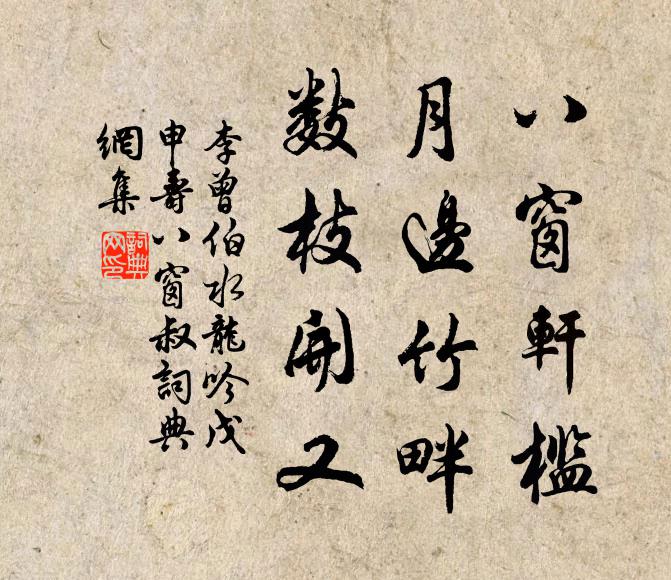 八窗軒檻
月邊竹畔
數枝開又
李曾伯水龍吟戊
申壽八窗叔詞典
網集
詞典網印